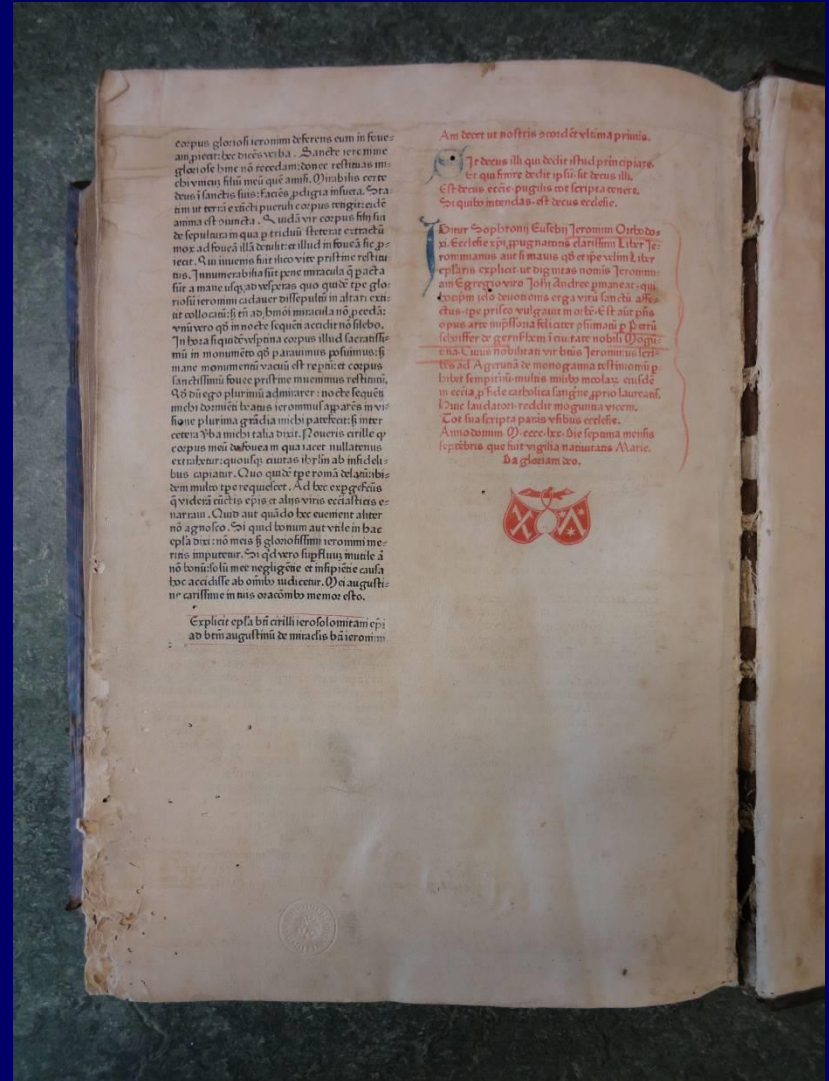 corpus gloriosi ieronimi deferens eum in foue⸗
am ꝓiecit: hec dicẽs verba. Sancte ieronime
gloriose hinc nõ recedam: donec restituas mi⸗
chi vnicũ filiũ meũ quẽ amisi. Mirabilis certe
deus ĩ sanctis suis: faciẽs ꝓdigia insueta. Sta⸗
tim ut terrã extĩcti pueruli corpus tengit: eidẽ
anima est ꝯiuncta. Quidã vir corpus filij sui
de sepultura in qua p triduũ steterat extractũ
mox ad foueã illã detulit: et illud in foueã sic ꝓ⸗
iecit. Qui iuuenis fuit ilico vite pristine restitu
tus. Innumerabilia sũt pene miracula q̃ pacta
sũt a mane usqꝫ ad vesperas quo quidẽ tpe glo⸗
riosũ ieronimi cadauer dissepultũ in altari exti⸗
tit collocatũ: sꝫ tñ ad hmõi miracula nõ ꝓcedã:
vnũ vero qđ in nocte sequẽti accidit nõ silebo.
In hora siquidẽ vesꝑtina corpus illud sacratissi⸗
mũ in monumẽto qđ parauimus posuimus: sꝫ
mane monumentũ vacuũ est reptũ: et corpus
sanctissimũ fouee pristine inuenimus restitutũ,
Qđ dũ ego plurimũ admirarer: nocte sequẽti
michi dormiẽti beatus ieronimus apparẽs in vi⸗
sione plurima grãdia michi patefecit: sꝫ inter
cetera ṽba michi talia dixit. Noueris cirille qꝫ
corpus meũ de fouea in qua iacet nullatenus
extrahetur: quousqꝫ ciuitas ihrlm̃ ab infideli⸗
bus capiatur. Quo quidẽ tpe romã delatũ: ibi⸗
dem multo tpe requiescet. Ad hec expgefcũs
q̃ viderã cũctis epĩs et alijs viris eccĩasticis e⸗
narraui. Quid aut quãdo hec euenient aliter
nõ agnosco. Si quid bonum aut vtile in hac
epl̃a dixi: nõ meis sꝫ gloriosissimi ieronimi me⸗
ritis imputetur. Si qd vero supfluũ inutile ã
nõ bonũ: solũ mee negligẽtie et insipiẽtie causa
hoc accidisse ab omĩbꝫ iudicetur. Mei augusti⸗
ne carissime in tuis oracõmbꝫ memor esto.
Explicit epl̃a bñ cirilli ierosolomitani epĩ
ad btm̃ augustinũ de miracĩis bĩ ieronimi
Am decet ut nostris ꝯcordẽt vltima primis.
Sit decus illi qui dedit istud principiare.
Et qui finire dedit ipsũ: sit decus illi.
Est decus eccl̃ie: pugilis tot scripta tenere.
Si quibꝫ intendas: est decus ecclesie.
Igitur Sophronij Eusebij Ieronimi Orthodo⸗
xi. Ecclesie xp̃i ꝓpugnatoris clarissimi Liber Ie⸗
ronimianus aut si mauis qđ et ip̃e velim Liber
ep̃laris explicit: ut dignitas nomĩs Ieronimi⸗
ani Egregio viro Joh̃i Andree ꝑmaneat: qui
hoc ip̃m zelo deuotionis erga virũ sanctũ affe⸗
ctus: tpe prisco vulgauit in orbẽ. Est aũt p̃ns
opus arte imp̃ssoria feliciter ꝯsumatũ p Petrũ
schoiffer de gernsshem ĩ ciuitate nobili Mogũ⸗
tina. Cuius nobilitati vir btũs Ieronimus scri⸗
bẽs ad Agerũtiã de monogamia testimoniũ p⸗
hibet sempiternũ: multis milibꝫ incolarꝫ eiusdẽ
in ecclĩa ꝓ fide catholica sangĩne ꝓprio laureatis.
Huic laudatori reddit moguntia vicem,
Tot sua scripta parãs vsibus ecclesie.
Anno domini. M. cccc. lxx. Die septima mensis
septẽbris que fuit vigilia natiuitatis Marie.
Da gloriam deo.